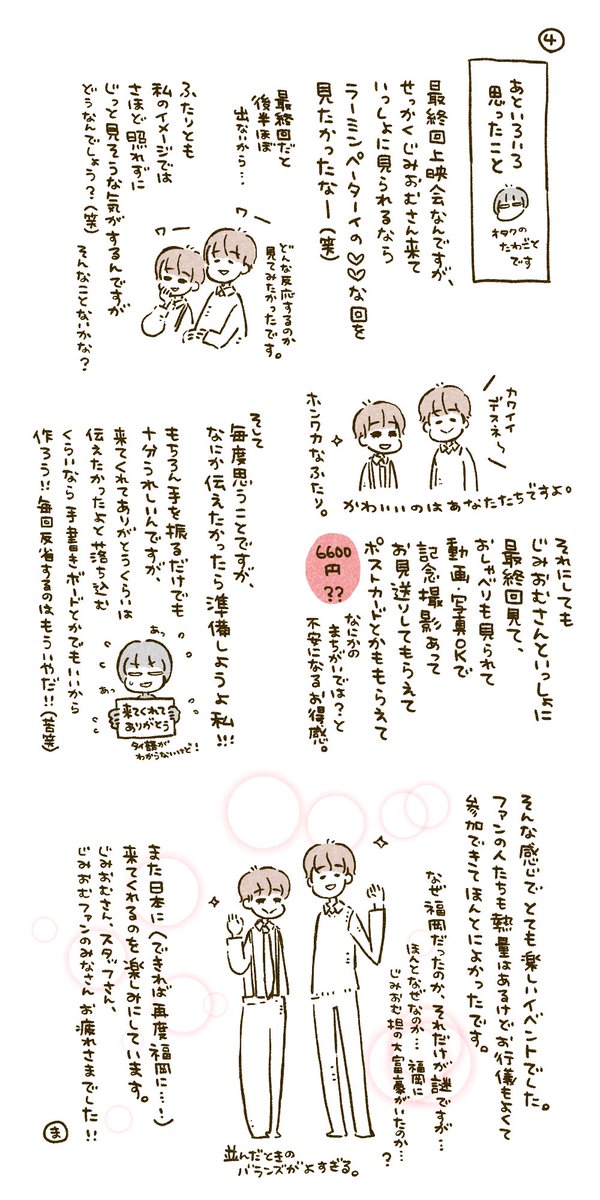 ④
あといろいろ
思ったこと
オタクの
たわごと
です
最終回上映会なんですが、
せっかくじみおむさん来て
いっしょに見られるなら
ラーミンペーターイの♡♡な回を
見たかったなー(笑)
最終回だと
後半ほぼ
出ないから…
ワー
ワー
どんな反応するのか
見てみたかったです。
ふたりとも
私のイメージでは
さほど照れずに
じっと見そうな気がするんですが
どうなんでしょう?(笑)
そんなことないかな?
カワイイ
デスネ〜
ホンワカなふたり。
かわいいのはあなたたちですよ。
それにしても
じみおむさんといっしょに
最終回見て、
おしゃべりも見られて
動画・写真OKで
記念撮影あって
お見送りしてもらえて
ポストカードとかももらえて
6600
円
??
なにかの
まちがいでは?と
不安になるお得感。
そして
毎度思うことですが、
なにか伝えたかったら準備しようよ私!!!
もちろん手を振るだけでも
十分うれしいんですが、
来てくれてありがとうくらいは
伝えたかったよと落ち込む
くらいなら手書きボードとかでもいいから
作ろう!!毎回反省するのはもういやだ!!(苦笑)
あっ
あっ
来てくれて
ありがとう
タイ語が
わからないけど!
そんな感じでとても楽しいイベントでした。
ファンの人たちも熱量はあるけどお行儀もよくて
参加できてほんとによかったです。
なぜ福岡だったのか、それだけが謎ですが…
ほんとなぜなのか…福岡に
じみおむ担の大富豪がいたのか…?
また日本に(できれば再度福岡に…!)
来てくれるのを楽しみにしています。
じみおむさん、スタッフさん、
じみおむファンのみなさんお疲れさまでした!!
並んだときの
バランスがよすぎる。
ま